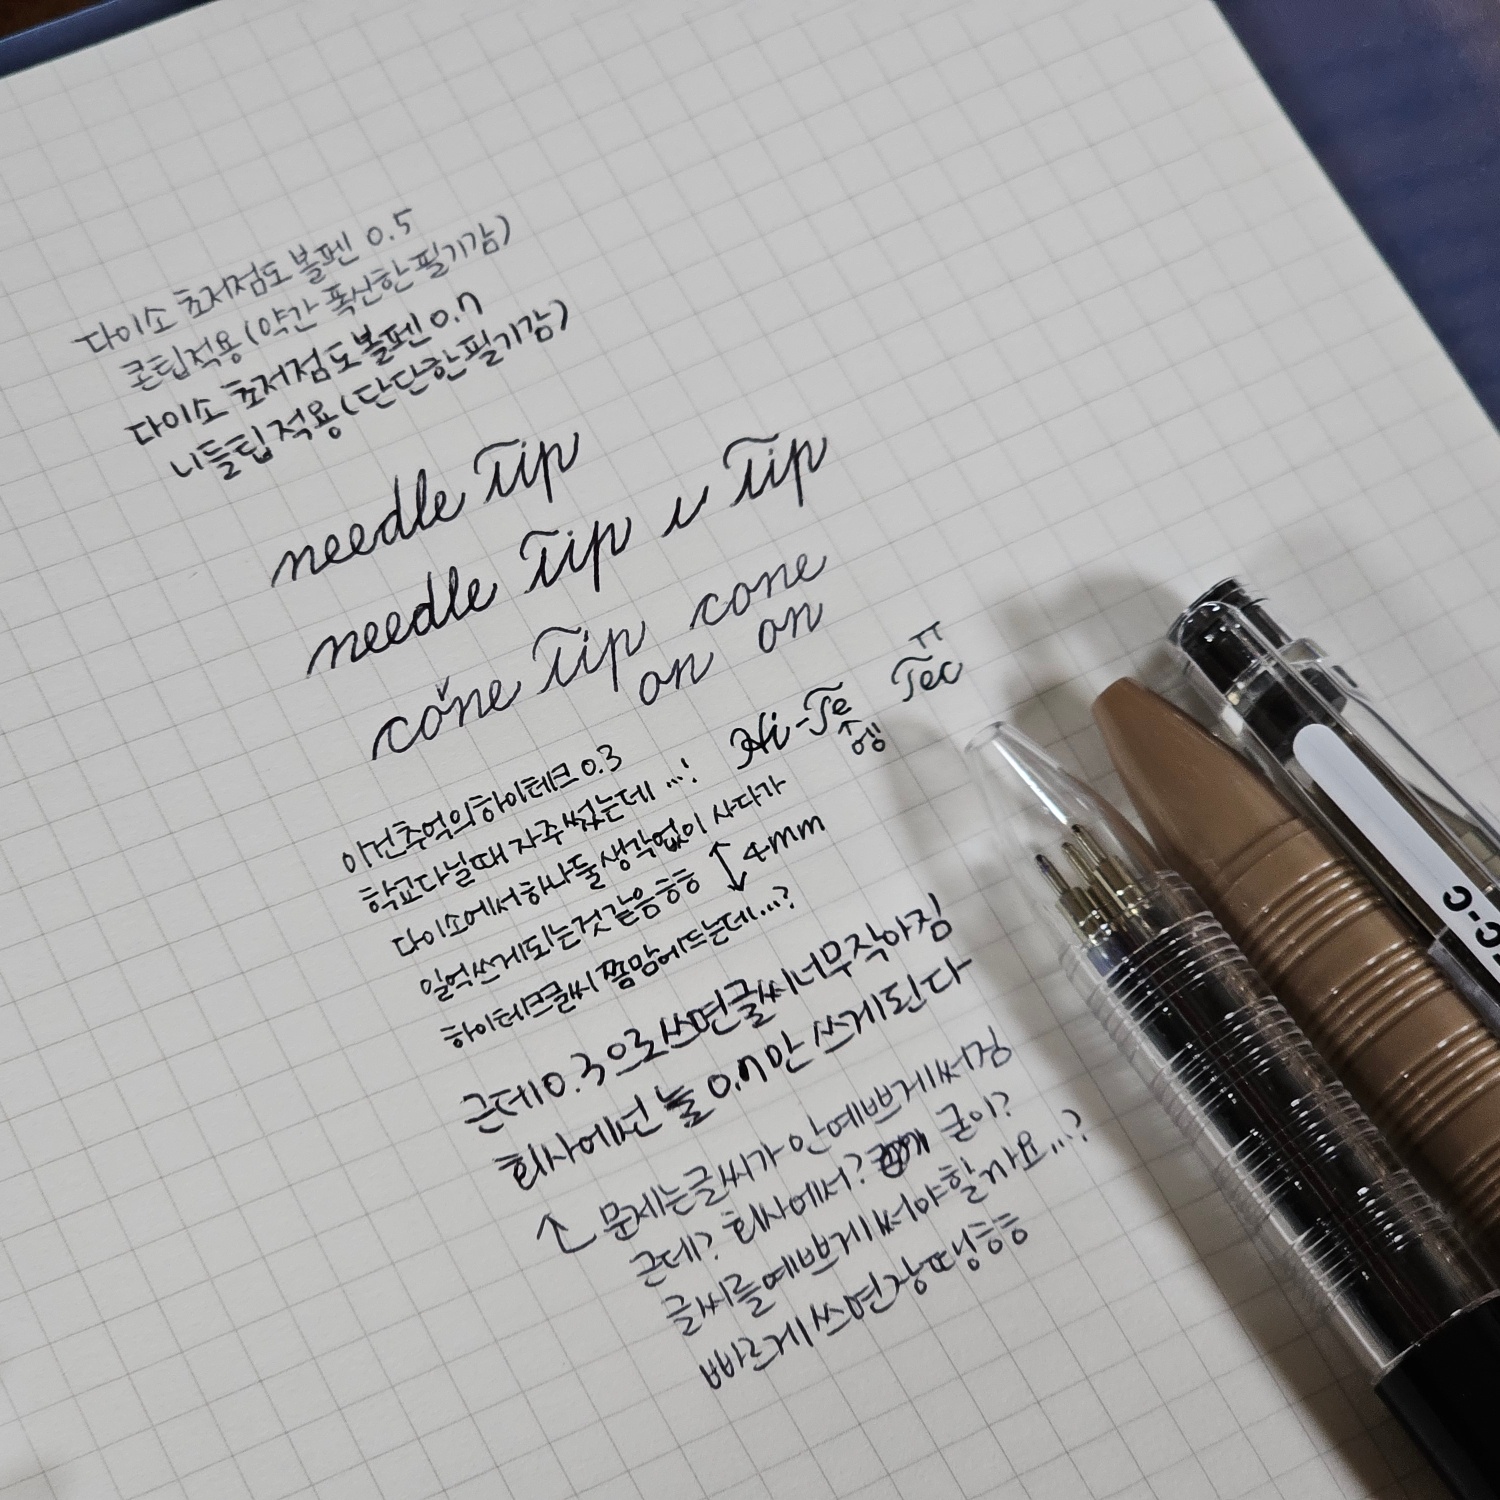 다이소 초저점도 볼펜 0.5
콘팁적용(약간 폭신한 필기감)
다이소 초저점도볼펜 0.7
니들팁적용(단단한필기감)
needle Tip
needle Tip Tip
cone Tip cone
on on
이건추억의하이테크 0.3
Hi-Te Tec
엥
학교다닐때 자주썼는데 ...!
다이소에서하나둘생각없이 사다가
일억쓰게되는것같음ㅎㅎ 4mm
하이테크글씨 쫌맘에드는데...?
근데 0.3으로쓰면글씨너무작아짐
회사에선 늘 0.7만 쓰게된다
↑ 문제는글씨가 안예쁘게써짐
근데? 회사에서? 굳이?
글씨를예쁘게써야할까요...?
빠르게쓰면장땡ㅎㅎ
C-C